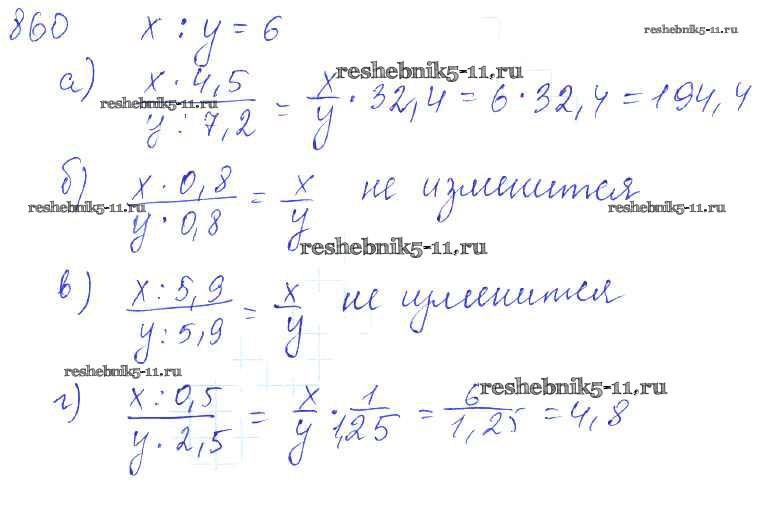 860 x : y = 6 reshebnik5-11.ru
reshebnik5-11.ru
а) x · 4,5 / y : 7,2 = x/y · 32,4 = 6 · 32,4 = 194,4
reshebnik5-11.ru
б) x · 0,8 / y · 0,8 = x/y не изменится
reshebnik5-11.ru reshebnik5-11.ru
reshebnik5-11.ru
в) x : 5,9 / y : 5,9 = x/y не изменится
reshebnik5-11.ru
reshebnik5-11.ru
г) x : 0,5 / y · 2,5 = x/y · 1/1,25 = 6/1,25 = 4,8